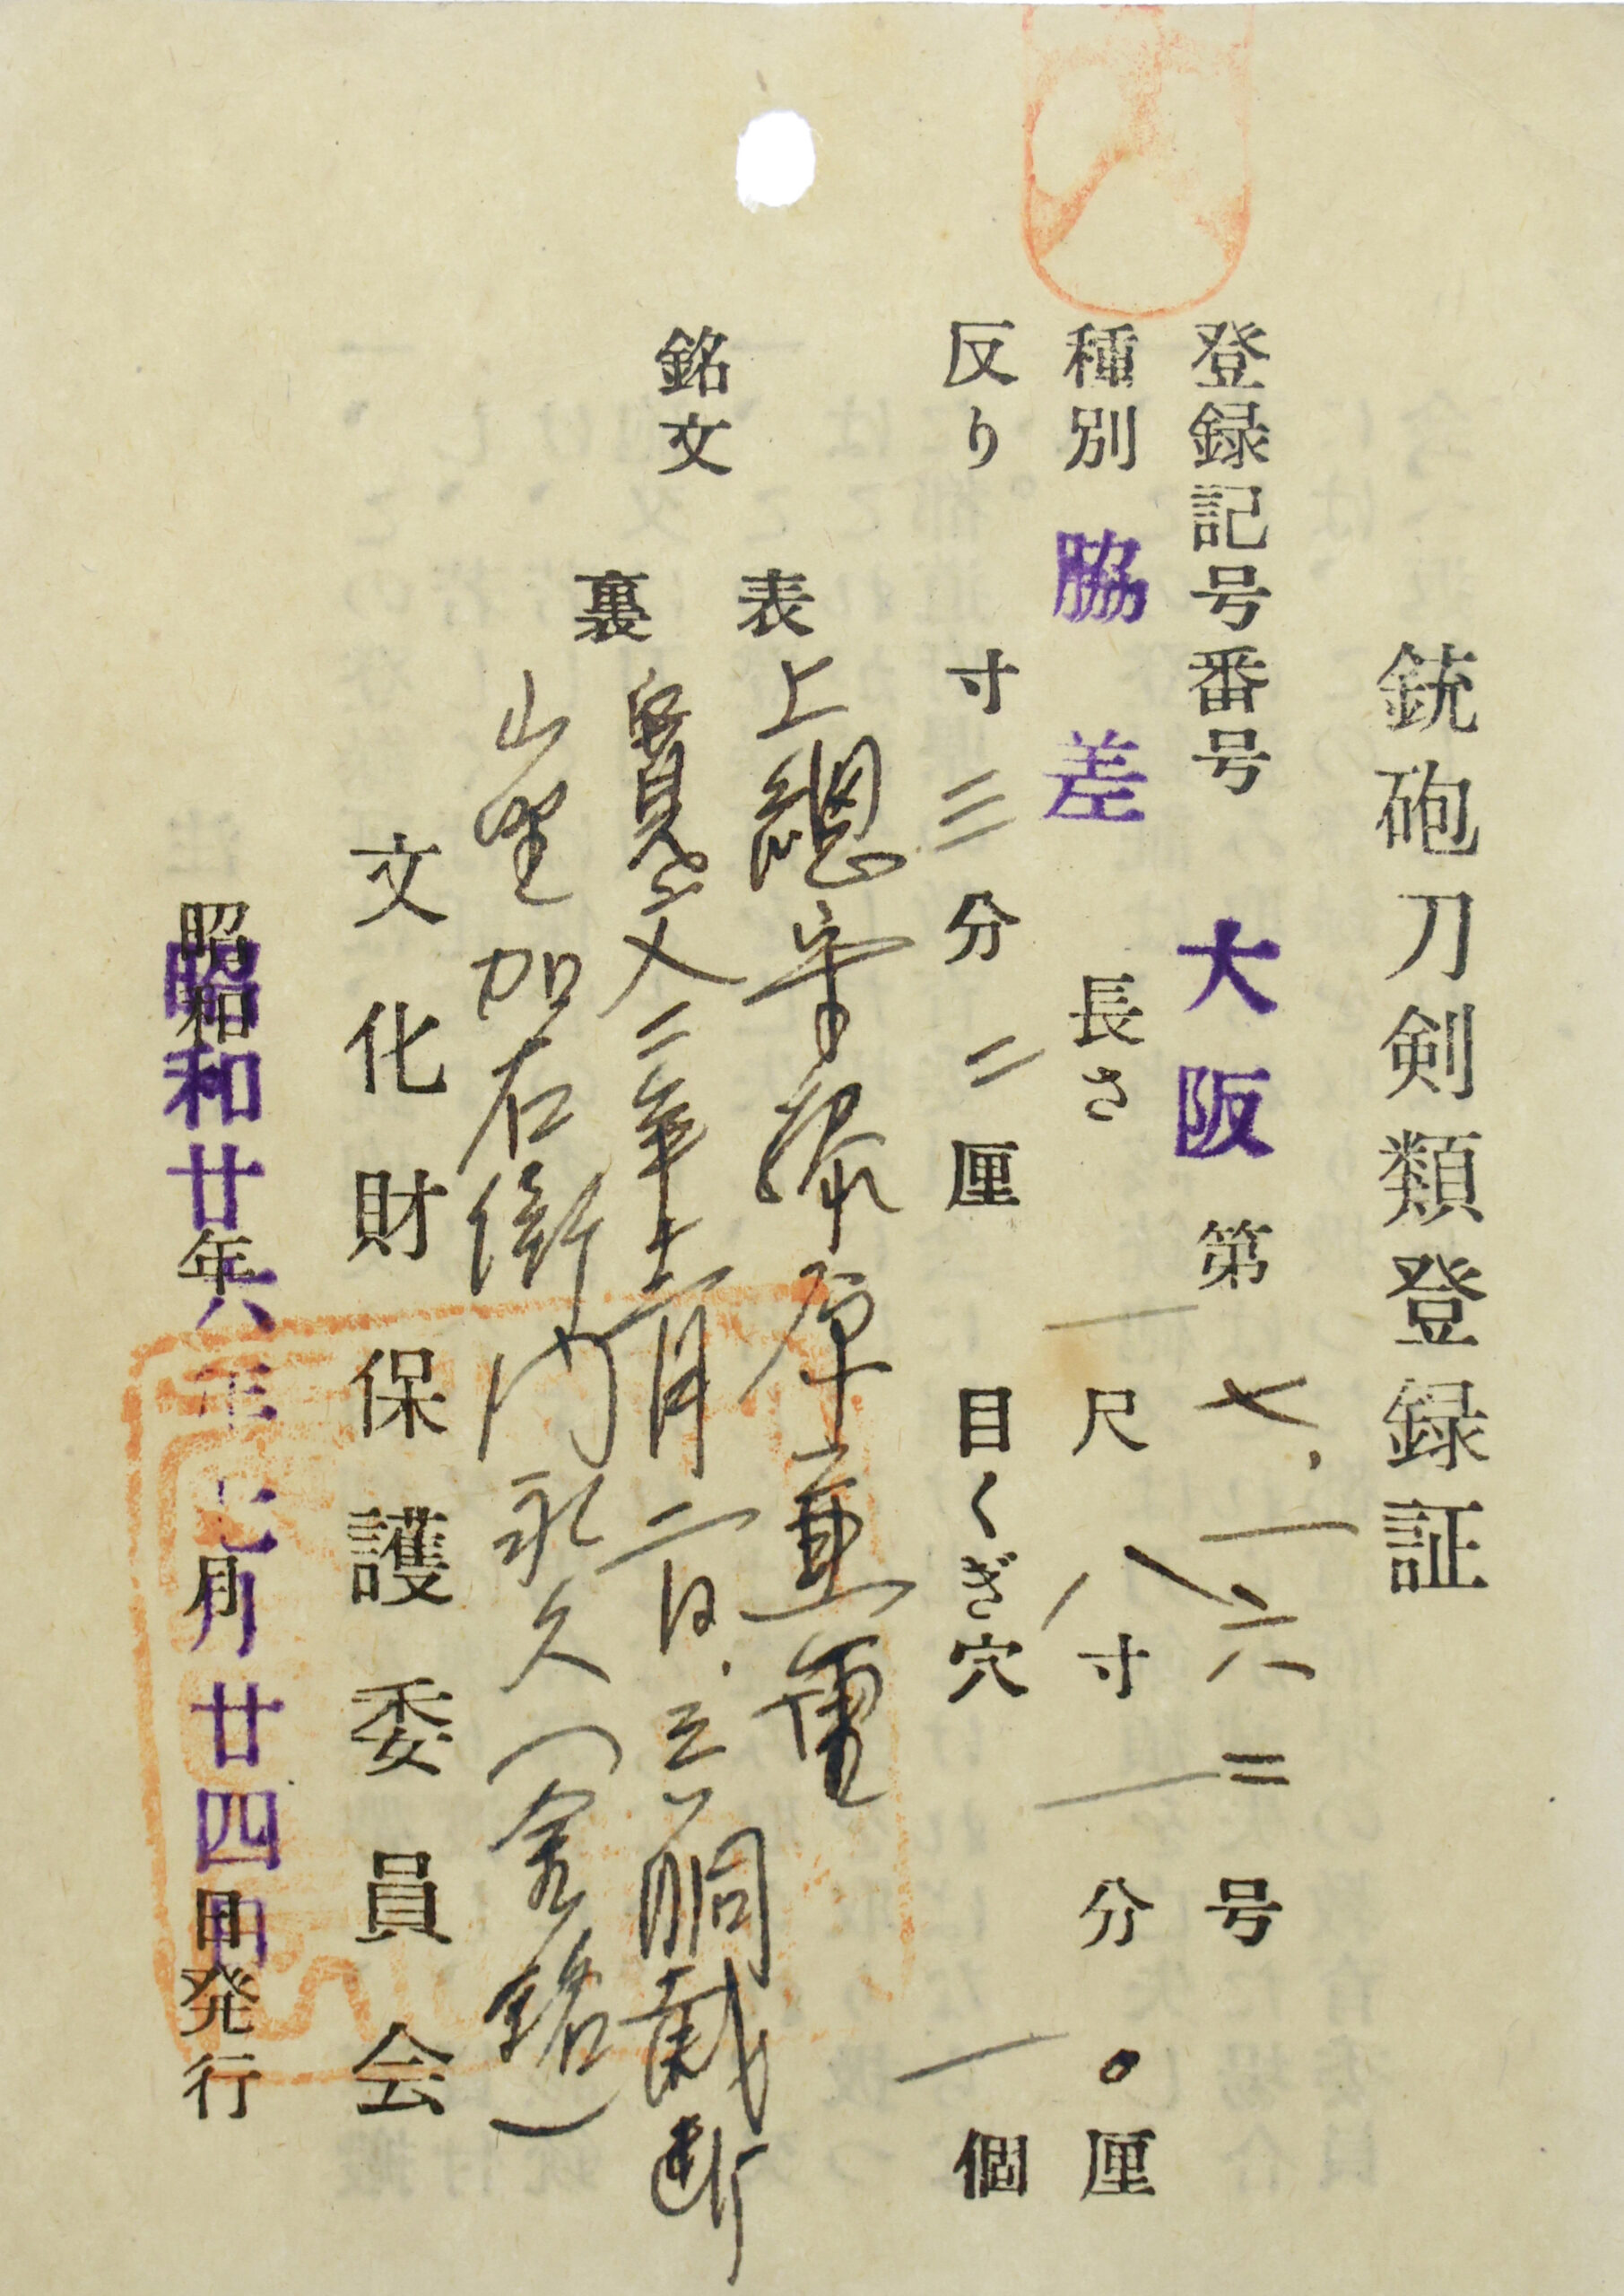 銃砲刀剣類登録証
登録記号番号 大阪 第 七、一六二 号
種別 脇差 長さ 一尺 八寸 一分 〇厘
反り 寸 三分 二厘 目くぎ穴 一個
銘文
表 上總守藤原兼重
裏 寛文二年十二月二日 三ツ胴截断
山野加右衛門永久(金銘)
文化財保護委員会
昭和廿六年七月廿四日発行